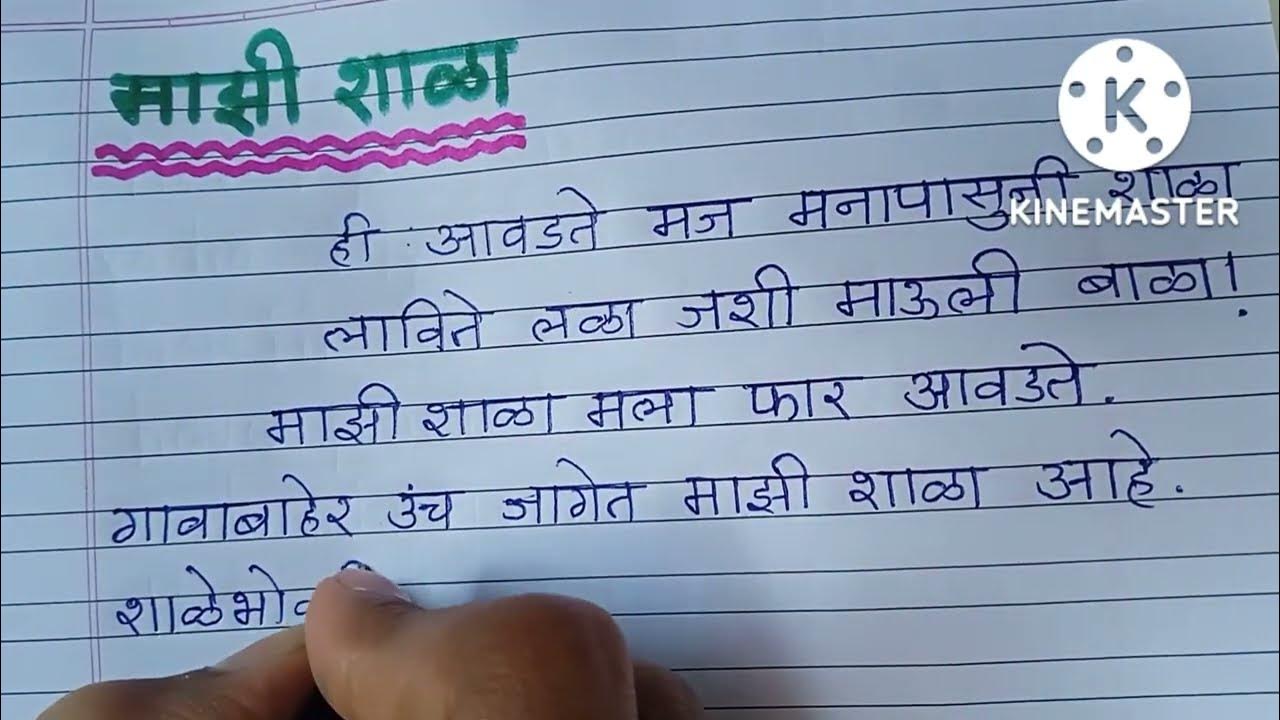 माझी शाळा
K
KINEMASTER
ही आवडते मज मनापासुनी शाळा
लाविते लळा जशी माऊली बाळा!
माझी शाळा मला फार आवडते.
गावाबाहेर उंच जागेत माझी शाळा आहे.